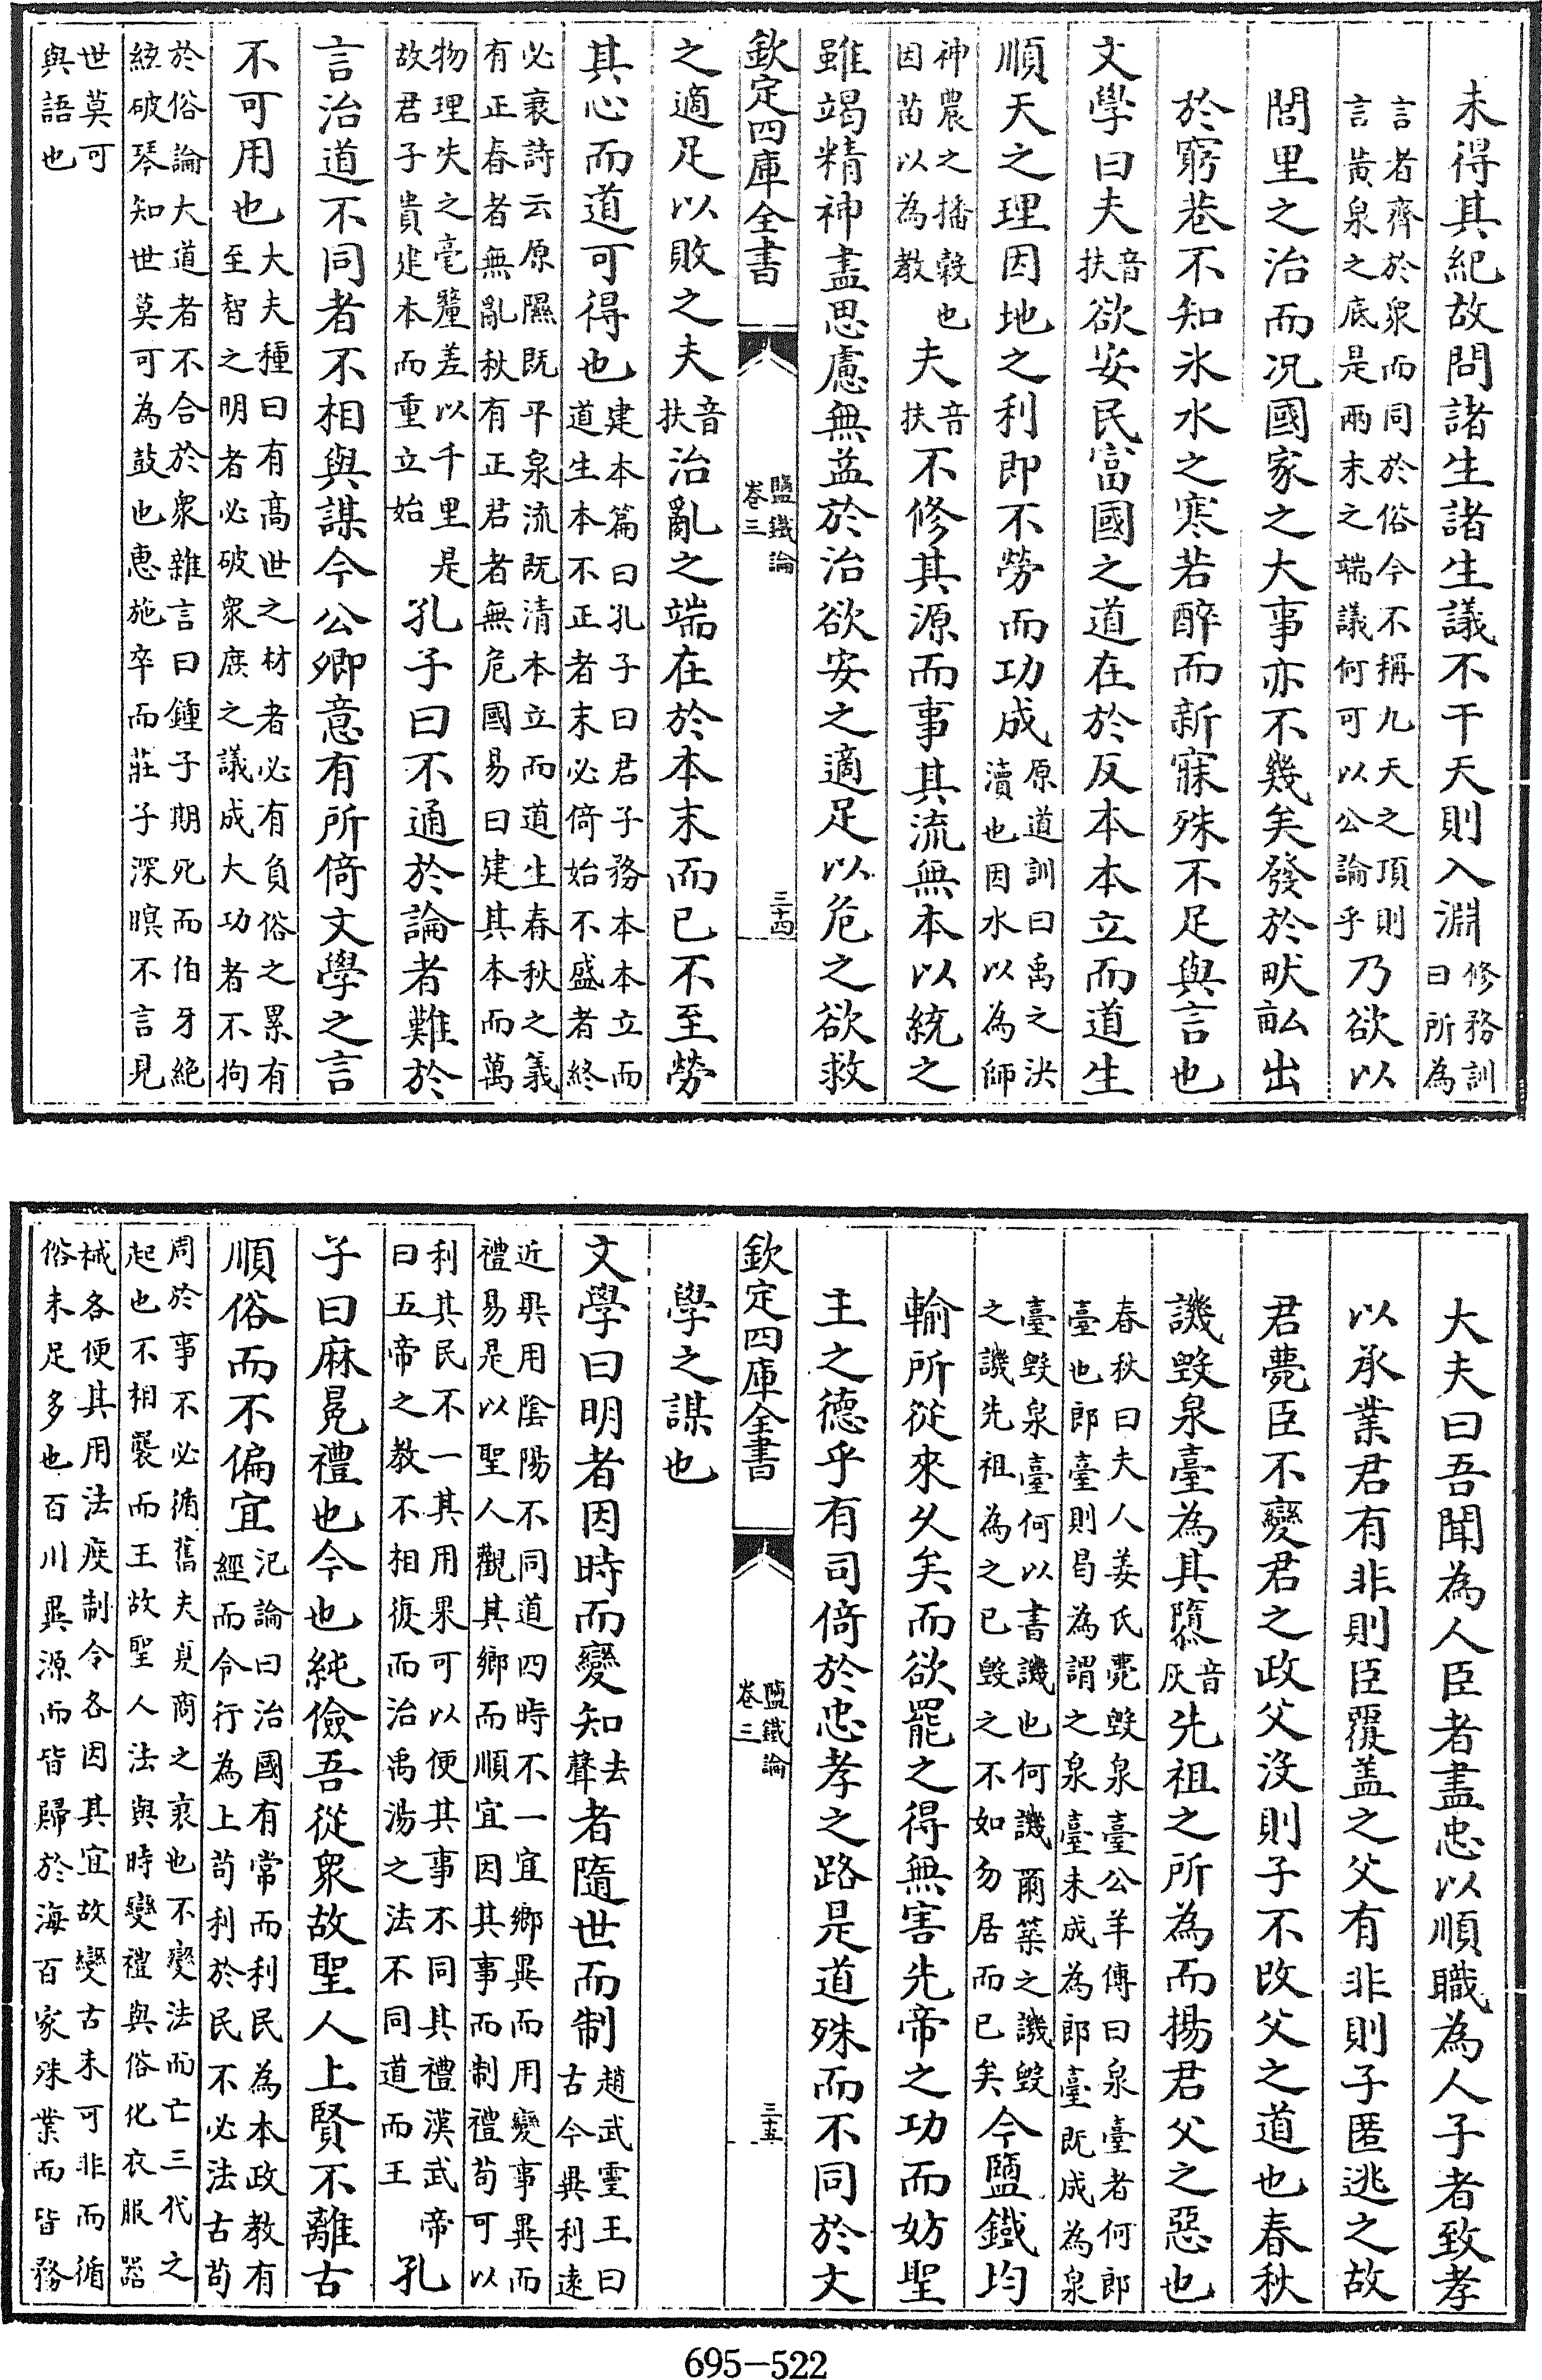 未得其紀故問諸生諸生議不干天則入淵修務訓曰所為
言者齊於衆而同於俗今不稱九天之頂則言黃泉之底是兩末之端議何可以公論乎乃欲以
閭里之治而况國家之大事亦不幾矣發於畎畝出
於窮巷不知氷水之寒若醉而新寐殊不足與言也
文學曰夫音扶欲安民富國之道在於反本本立而道生
順天之理因地之利即不勞而功成原道訓曰禹之決瀆也因水以為師
神農之播穀也因苗以為教夫音扶不修其源而事其流無本以統之
雖竭精神盡思慮無益於治欲安之適足以危之欲救
欽定四庫全書
鹽鐵論
卷三
三十四
之適足以敗之夫音扶治亂之端在於本末而已不至勞
其心而道可得也建本篇曰孔子曰君子務本本立而道生本不正者末必倚始不盛者終
必衰詩云原隰既平泉流既清本立而道生春秋之義有正春者無亂秋有正君者無危國易曰建其本而萬
物理失之毫釐差以千里是故君子貴建本而重立始孔子曰不通於論者難於
言治道不同者不相與謀今公卿意有所倚文學之言
不可用也大夫種曰有高世之材者必有負俗之累有至智之明者必破衆庶之議成大功者不拘
於俗論大道者不合於衆雜言曰鍾子期死而伯牙絕絃破琴知世莫可為鼓也惠施卒而莊子深瞑不言見
世莫可與語也
大夫曰吾聞為人臣者盡忠以順職為人子者致孝
以承業君有非則臣覆盖之父有非則子匿逃之故
君薨臣不變君之政父沒則子不改父之道也春秋
譏毀泉臺為其隳音灰先祖之所為而揚君父之惡也
春秋曰夫人姜氏薨毀泉臺公羊傳曰泉臺者何郎臺也郎臺則曷為謂之泉臺未成為郎臺既成為泉
臺毀泉臺何以書譏也何譏爾築之譏毀之譏先祖為之已毀之不如勿居而已矣今鹽鐵均
輸所從來乆矣而欲罷之得無害先帝之功而妨聖
主之德乎有司倚於忠孝之路是道殊而不同於文
欽定四庫全書
鹽鐵論
卷三
三十五
學之謀也
文學曰明者因時而變知去聲者隨世而制趙武靈王曰古今異利遠
近異用陰陽不同道四時不一宜鄉異而用變事異而禮易是以聖人觀其鄉而順宜因其事而制禮苟可以
利其民不一其用果可以便其事不同其禮漢武帝曰五帝之教不相復而治禹湯之法不同道而王孔
子曰麻冕禮也今也純儉吾從衆故聖人上賢不離古
順俗而不偏宜氾論曰治國有常而利民為本政教有經而令行為上苟利於民不必法古苟
周於事不必循舊夫夏商之衰也不變法而亡三代之起也不相襲而王故聖人法與時變禮與俗化衣服器
械各便其用法度制令各因其宜故變古未可非而循俗未足多也百川異源而皆歸於海百家殊業而皆務
695-522